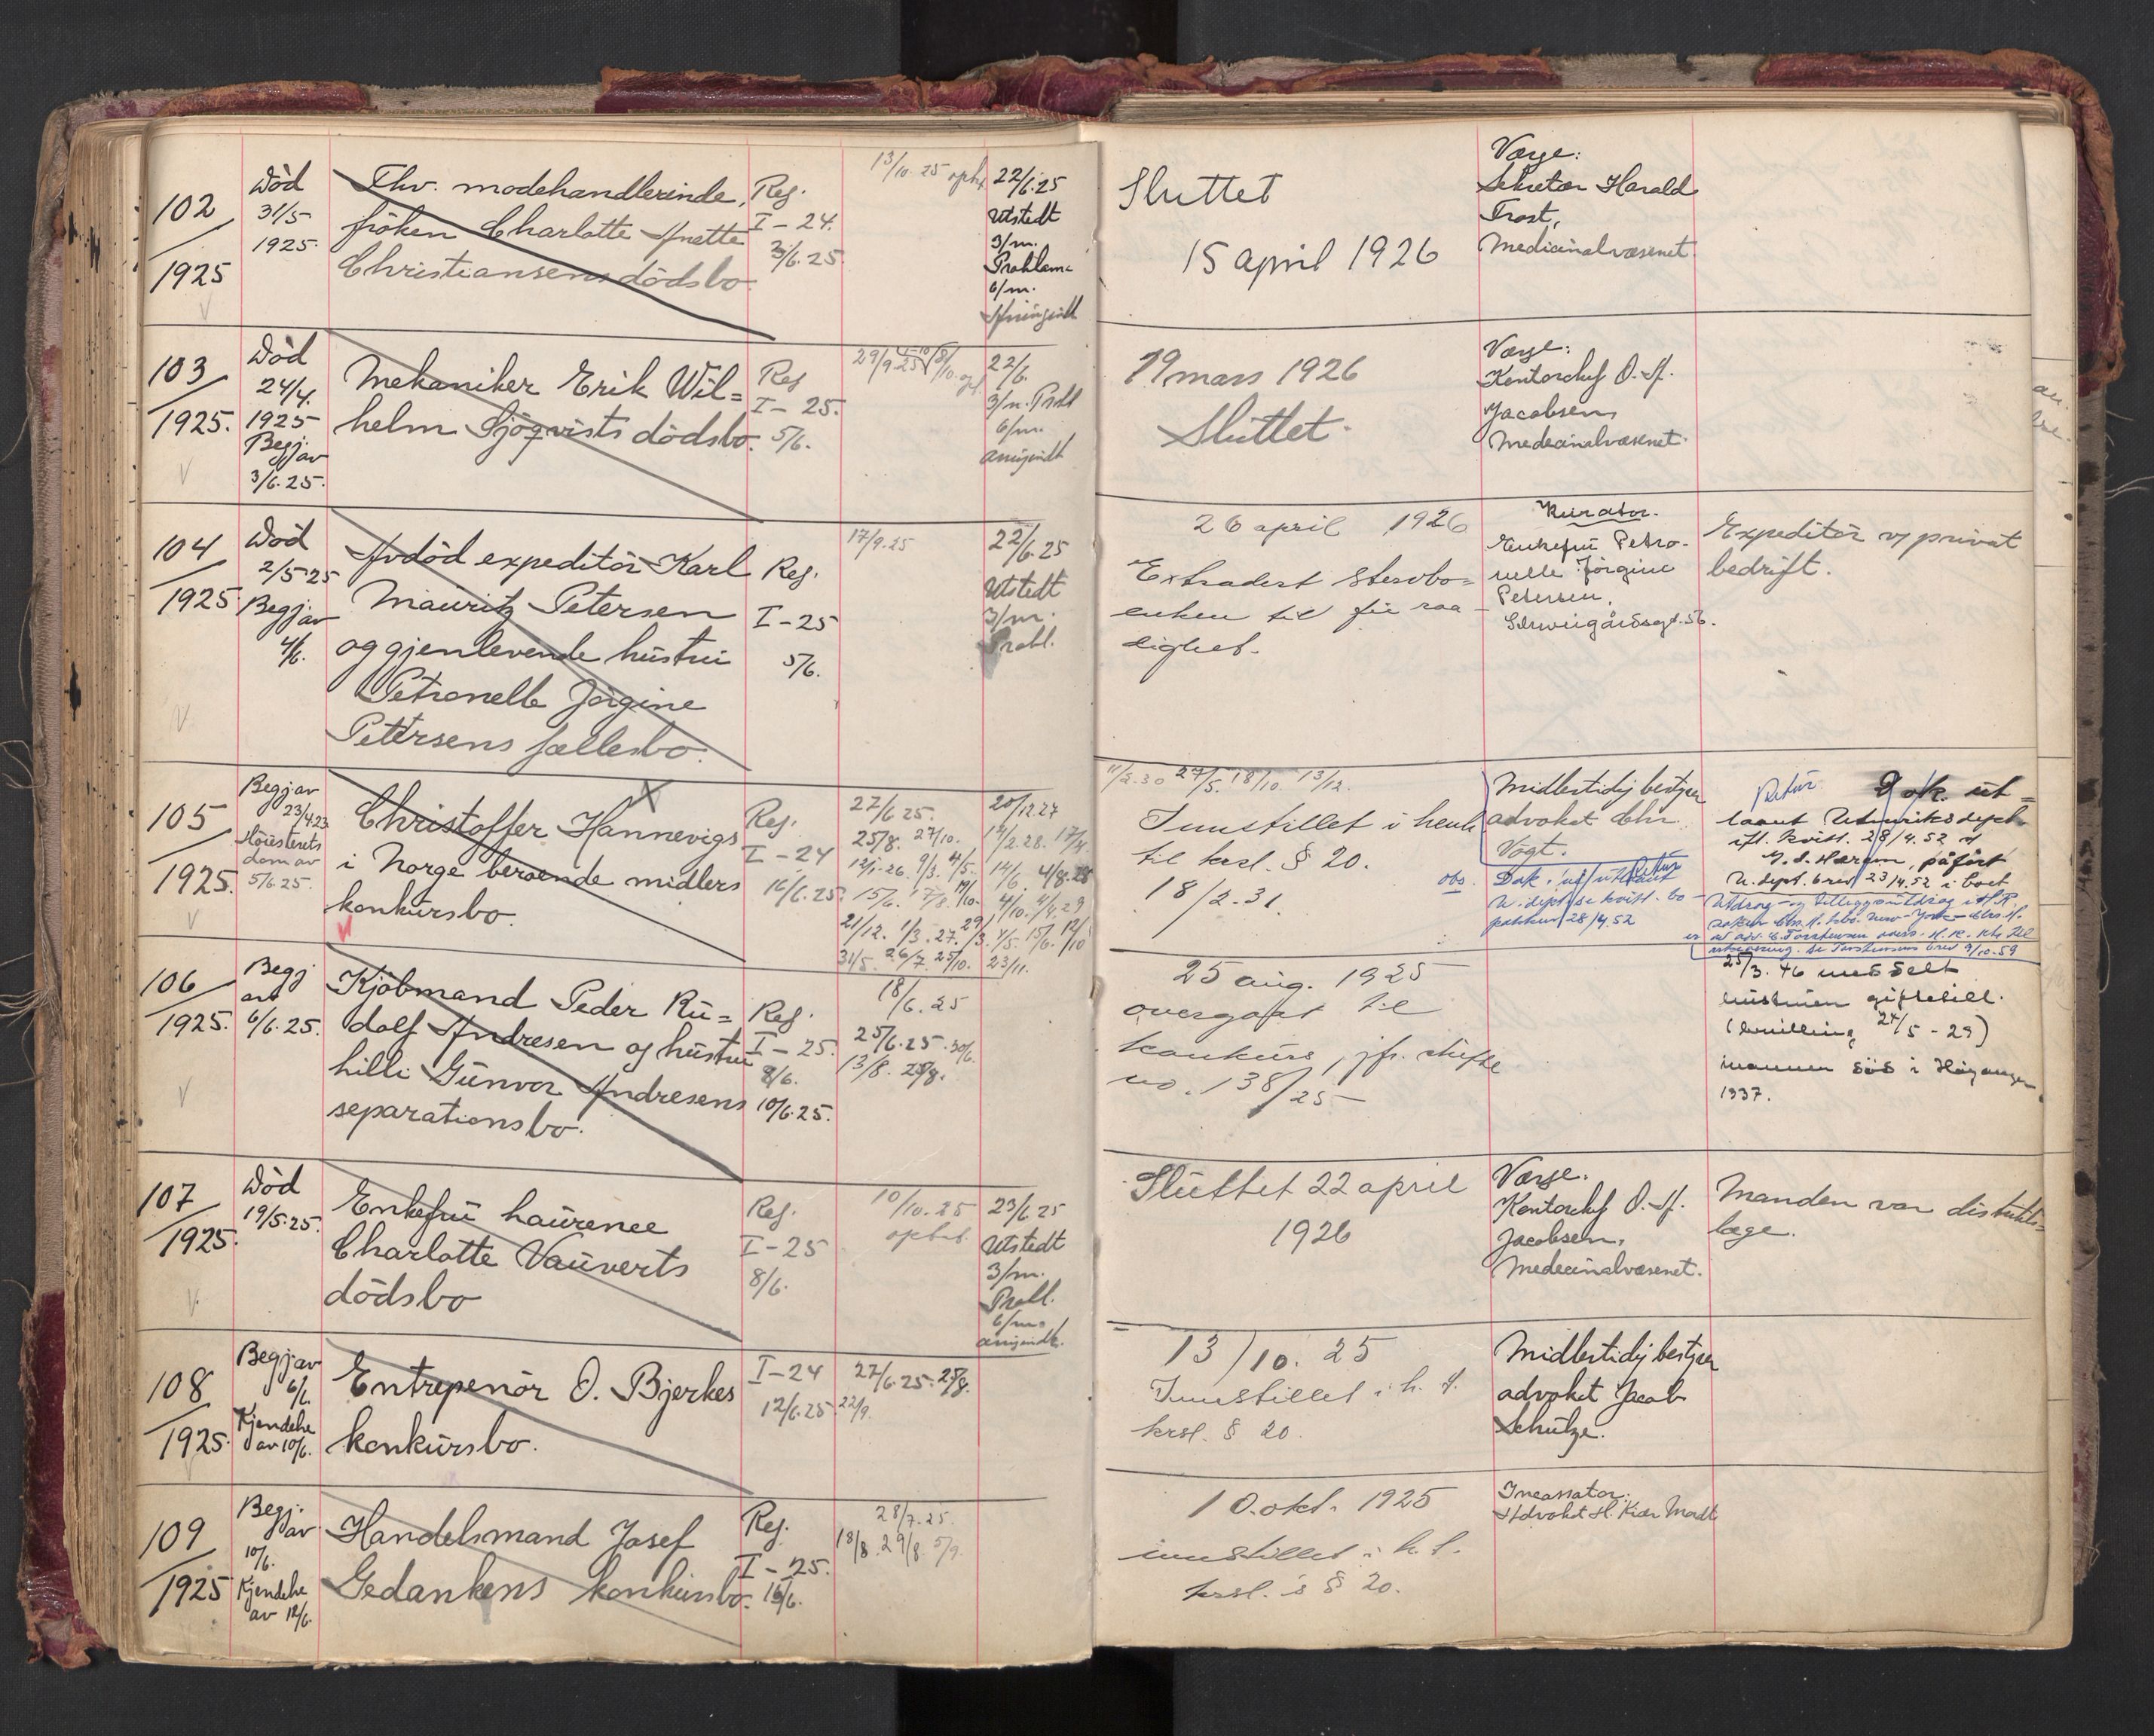 102
1925
Död
31/5
1925.
Fhv. modehandlerinde,
fröken Charlotte Anette
Christiansens dödsbo.
Reg.
I - 24.
3/6. 25.
13/10. 25 opht
22/6.25
Utstedt
3/m.
Proklama
6/m.
Sluttet
15 april 1926
Værge:
Sekretær Harald
Frost,
Medicinalvæsenet.
103
1925.
Död
24/4.
1925
Begj. av
3/6. 25.
Mekaniker Erik Wil=
helm Sjöqvists dödsbo.
Reg
I - 25.
5/6.
29/9 25
22/6.
3/m. Prokl
6/m.
19 mars 1926
Sluttet.
Værge:
Kontorchef O. A.
Jacobsen,
Medecinalvæsenet.
104
1925.
Död
2/5-25
Begj av
4/6.
Avdöd expeditör Karl
Mauritz Petersen
og gjenlevende hustru
Petronelle Jörgine
Petersens fællesbo.
Reg.
I - 25
5/6.
17/9.25
22/6.25
Utstedt
3/m.
Prokl.
26 april 1926
Extradert stervbo=
enken til fri raa-
dighet.
Kurator.
Enkefru Petro-
nelle Jörgine
Petersen,
Schweigårdsgt. 56.
Expeditör v/ privat
bedrift.
105
1925.
Begj av
23/4.23
Höiesterets
dom av
5/6 25.
Christoffer Hannevigs
i Norge beroende midlers
konkursbo.
Reg.
I - 24
16/6.25.
27/6 25.
25/8. 27/10.
12/1-26. 9/3. 4/5.
21/12. 1/3. 27.
31/5. 26/7. 25/10.
20/12 27
14/2.28. 17/4.
14/6. 4/8.28
23/11.
11/2.30 27/5. 18/10. 13/12.
Innstillet i henh.
til krsl. § 20.
18/2 - 31.
Midlertidig bestyrer
advokat Chr.
Vogt.
obs.
28/4 52
Retur
Dok. ut=
laant Utenriksdept.
ifl. kvitt. 28/4.52 af
påfört
U. dept. brev 23/4.52 i boet
106
1925.
Begj
av
6/6. 25.
Kjöbmand Peder Ru=
dolf Andresen og hustru
Lilli Gunvor Andresens
separationsbo.
Reg.
I - 25.
8/6.
10/6.25.
18/6.25
25/6.25. 30/6.
13/8. 25/8.
25 aug. 1925
overgaat til
konkurs, jfr. skifte
no. 138/25
25/3. 46 meddelt
hustruen giftetill.
(bevilling 24/5 - 29)
mannen död i Höyanger
1937.
107
1925.
Död
19/5.25.
Enkefru Laurence
Charlotte Vauverts
dödsbo
Reg.
I - 25
8/6.
10/10. 25
23/6 25
Utstedt
3/m.
Prokl.
6/m.
Sluttet 22 april
1926
Værge.
Kontorchef O. A.
Jacobsen,
Medecinalvæsenet.
Manden var distrikts=
læge.
108
1925.
Begj av
6/6.
Kjendelse
av 10/6.
Entrepenör O. Bjerkes
konkursbo.
I - 24
12/6.25.
27/6.25. 25/8.
22/9.
13/10. 25
Innstillet i h. t.
krsl. § 20.
Midlertidig bestyrer
advokat Jacob
Schutze.
109
1925
Begj.
av
10/6.
Kjendelse
av 12/6.
Handelsmand Josef
Gedankens konkursbo.
Reg.
I - 25.
16/6.
28/7. 25.
18/8. 29/8. 5/9.
10. okt. 1925
innstillet i h. t.
krsl. s § 20.
Incassator:
Advokat H. Kiær Mordt